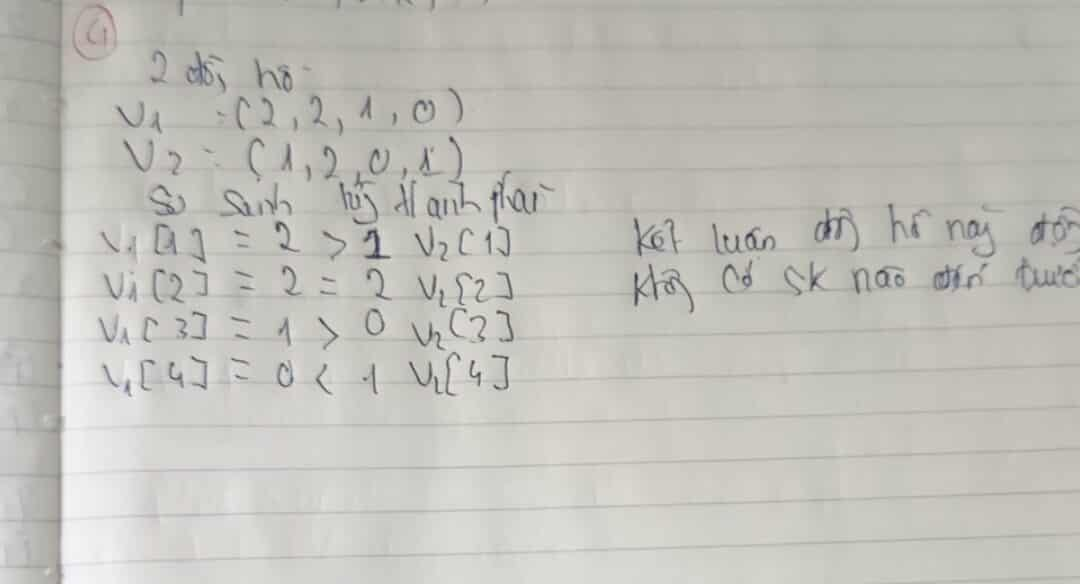 4
2 đồng hồ
V1 = (2, 2, 1, 0)
V2 = (1, 2, 0, 1)
So sánh từng thành phần
V1[1] = 2 > 1 V2[1]
V1[2] = 2 = 2 V2[2]
V1[3] = 1 > 0 V2[3]
V1[4] = 0 < 1 V2[4]
Kết luận đồng hồ này đồng
không có sk nào đến trước